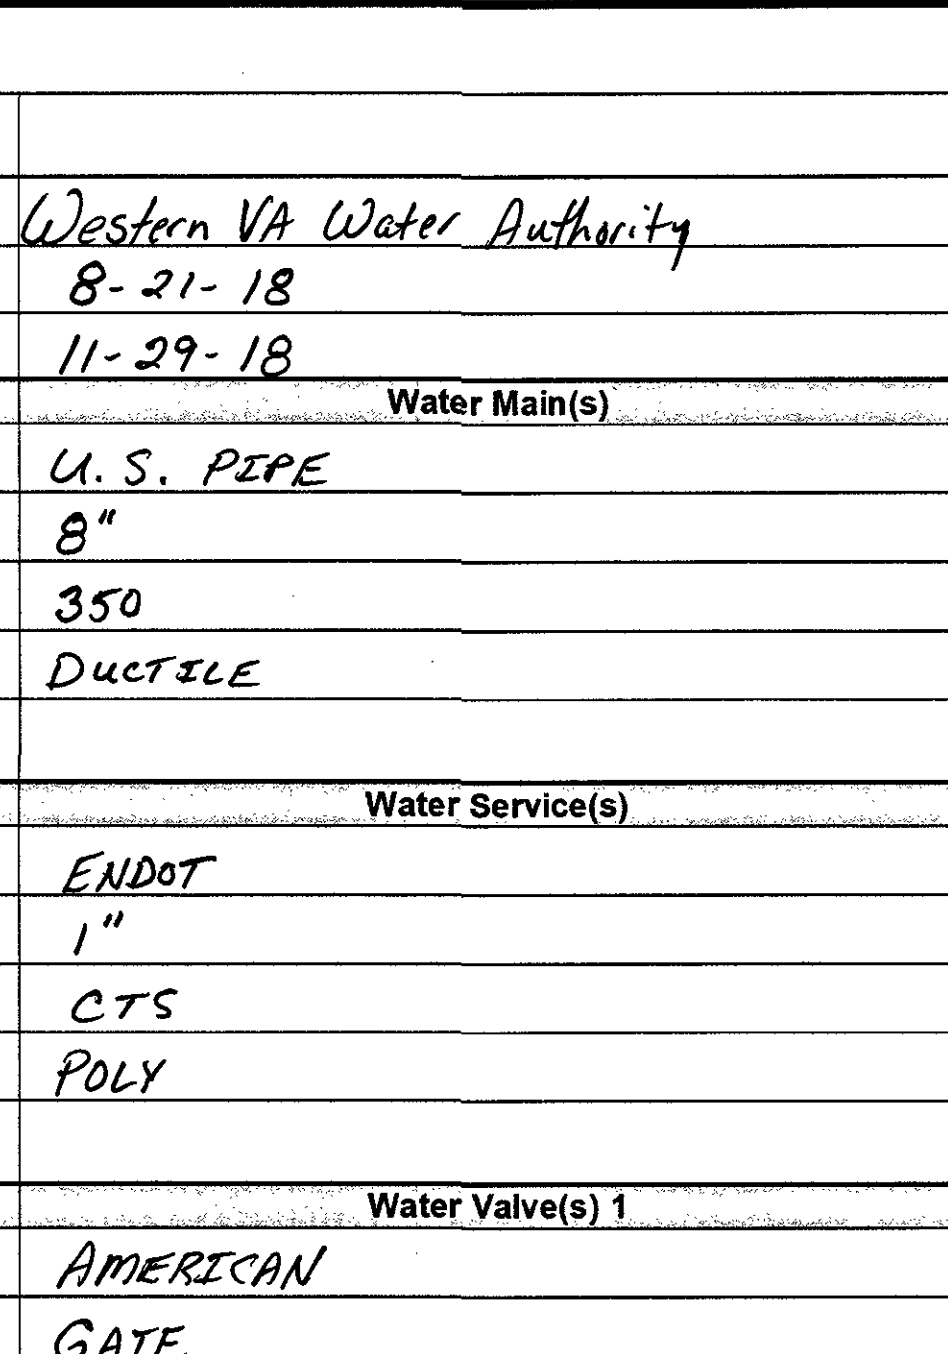 Western VA Water Authority
8-21-18
11-29-18
Water Main(s)
U.S. PIPE
8"
350
DUCTILE
Water Service(s)
ENDOT
1"
CTS
POLY
Water Valve(s) 1
AMERICAN
GATE